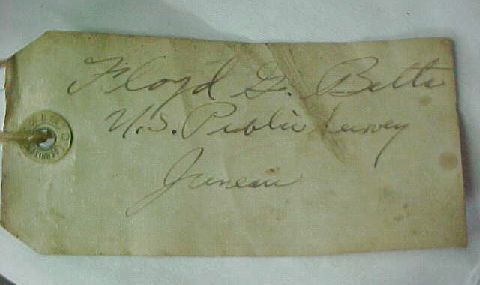 Floyd G. Betts
U.S. Public Survey
Juneau